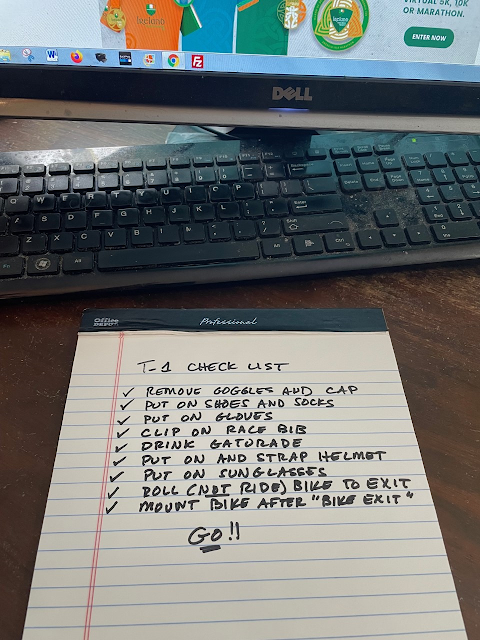 Ireland
Ireland
VIRTUAL 5K, 10K
OR MARATHON.
ENTER NOW
DELL
Q W E R T Y U I O P
A S D F G H J K L
Z X C V B N M
Enter
Shift
Alt
Ctrl
Fn
Office
DEPOT
Professional
T-1 CHECK LIST
✓ REMOVE GOGGLES AND CAP
✓ PUT ON SHOES AND SOCKS
✓ PUT ON GLOVES
✓ CLIP ON RACE BIB
✓ DRINK GATORADE
✓ PUT ON AND STRAP HELMET
✓ PUT ON SUNGLASSES
✓ ROLL (NOT RIDE) BIKE TO EXIT
✓ MOUNT BIKE AFTER "BIKE EXIT"
GO!!